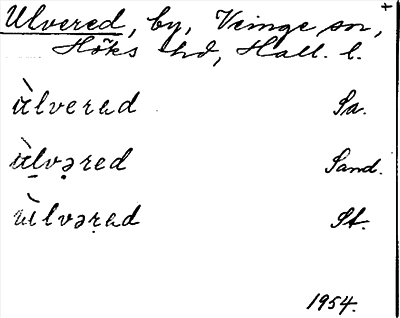 Ulvered, by, Veinge sn, +
Höks hd, Hall. l.
ùlvered Sa.
ùlvəred Sand.
ùlvəred St.
1954.